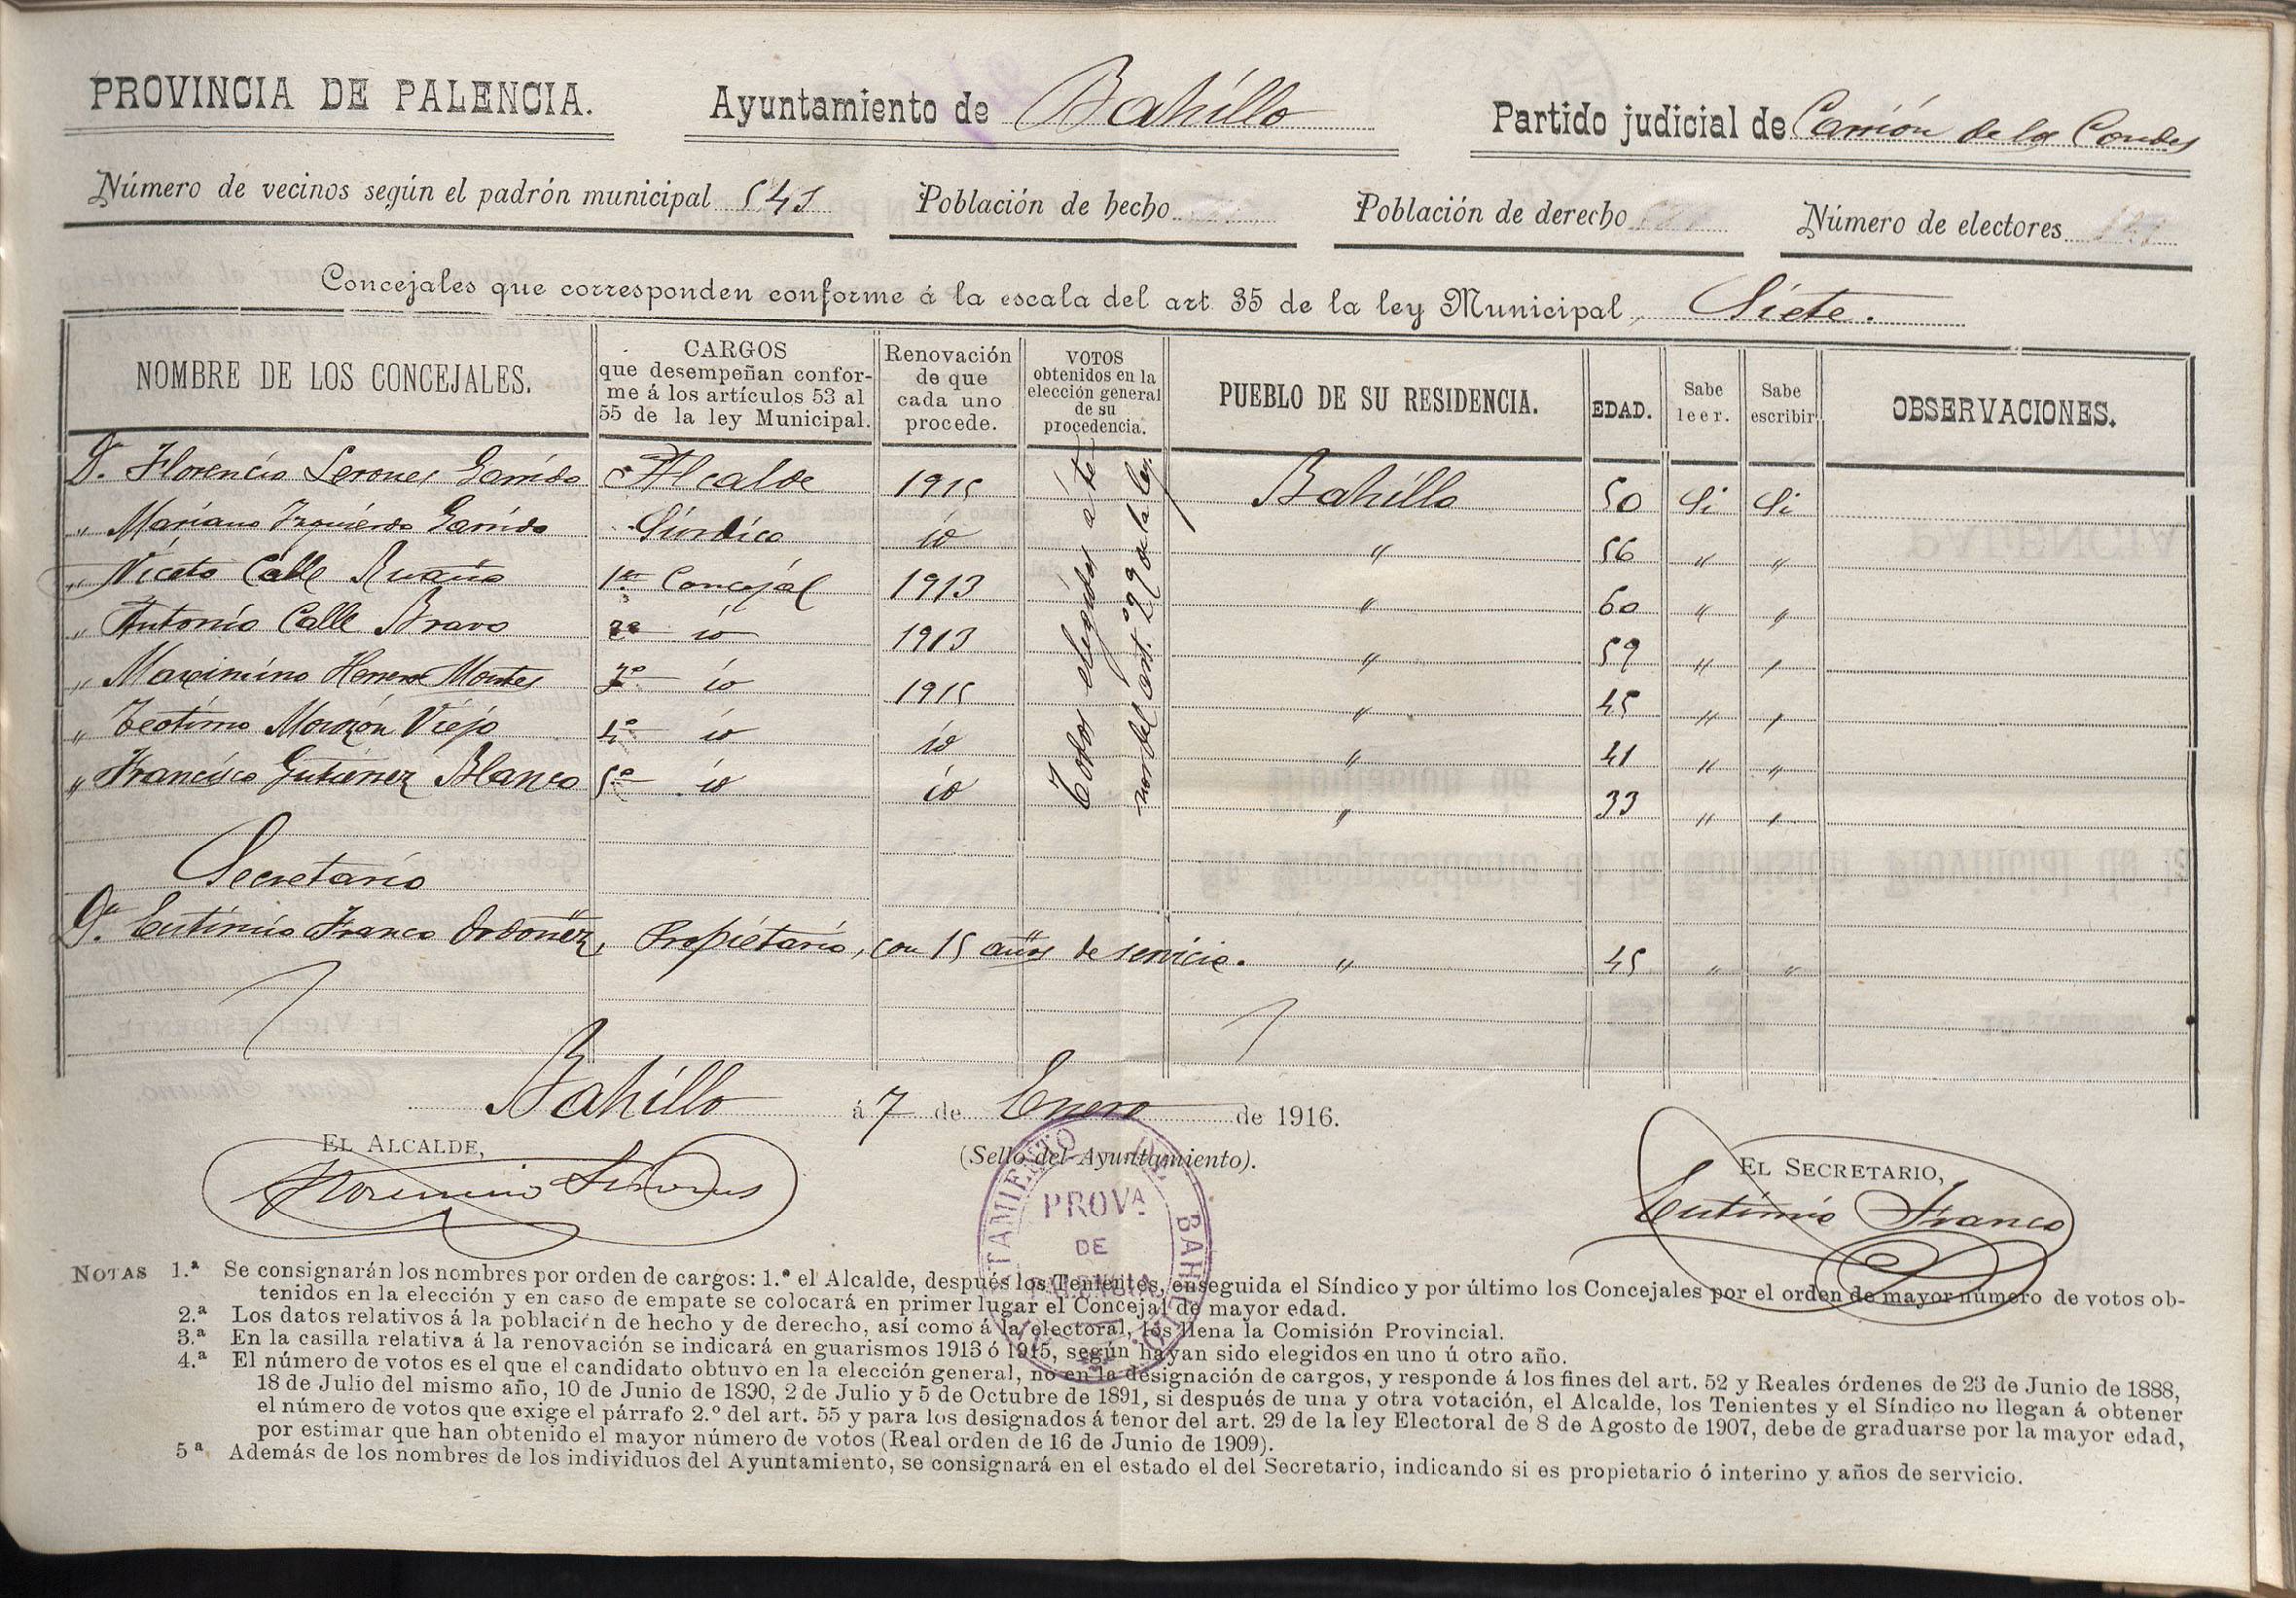 PROVINCIA DE PALENCIA. Ayuntamiento de Bahillo Partido judicial de Carrión de los Condes
Número de vecinos según el padrón municipal 541 Población de hecho Población de derecho Número de electores
Concejales que corresponden conforme á la escala del art. 35 de la ley Municipal, Siete.
NOMBRE DE LOS CONCEJALES. CARGOS que desempeñan conforme á los artículos 53 al 55 de la ley Municipal. Renovación de que cada uno procede. VOTOS obtenidos en la elección general de su procedencia. PUEBLO DE SU RESIDENCIA. EDAD. Sabe leer. Sabe escribir OBSERVACIONES.
D. Florencio Lerones Garrido Alcalde 1915 Bahillo 50 Si Si
" Mariano Izquierdo Garrido Síndico id " 56 " "
" Niceto Calle 1er Concejal 1913 " 60 " "
" Antonio Calle Bravo 2º id 1913 " 59 " "
" Maximino Herrero Montes 3º id 1915 " 45 " "
" Teótimo Monzón Viejo 4º id id " 41 " "
" Francisco Gutiérrez Blanco 5º id id " 33 " "
Todos elegidos á tenor del art. 29 de la ley
Secretario
D. Eutimio Franco Ordoñez, Propietario, con 15 años de servicio. " 45 " "
Bahillo á 7 de Enero de 1916.
EL ALCALDE, (Sello del Ayuntamiento). EL SECRETARIO,
Florencio Lerones Eutimio Franco
AYUNTAMIENTO DE BAHILLO
PROVA
DE
PALENCIA
NOTAS 1.ª Se consignarán los nombres por orden de cargos: 1.º el Alcalde, después los Tenientes, enseguida el Síndico y por último los Concejales por el orden de mayor número de votos ob-
tenidos en la elección y en caso de empate se colocará en primer lugar el Concejal de mayor edad.
2.ª Los datos relativos á la población de hecho y de derecho, así como á la electoral, los llena la Comisión Provincial.
3.ª En la casilla relativa á la renovación se indicará en guarismos 1913 ó 1915, según hayan sido elegidos en uno ú otro año.
4.ª El número de votos es el que el candidato obtuvo en la elección general, no en la designación de cargos, y responde á los fines del art. 52 y Reales órdenes de 23 de Junio de 1888,
18 de Julio del mismo año, 10 de Junio de 1890, 2 de Julio y 5 de Octubre de 1891, si después de una y otra votación, el Alcalde, los Tenientes y el Síndico no llegan á obtener
el número de votos que exige el párrafo 2.º del art. 55 y para los designados á tenor del art. 29 de la ley Electoral de 8 de Agosto de 1907, debe de graduarse por la mayor edad,
por estimar que han obtenido el mayor número de votos (Real orden de 16 de Junio de 1909).
5ª Además de los nombres de los individuos del Ayuntamiento, se consignará en el estado el del Secretario, indicando si es propietario ó interino y años de servicio.